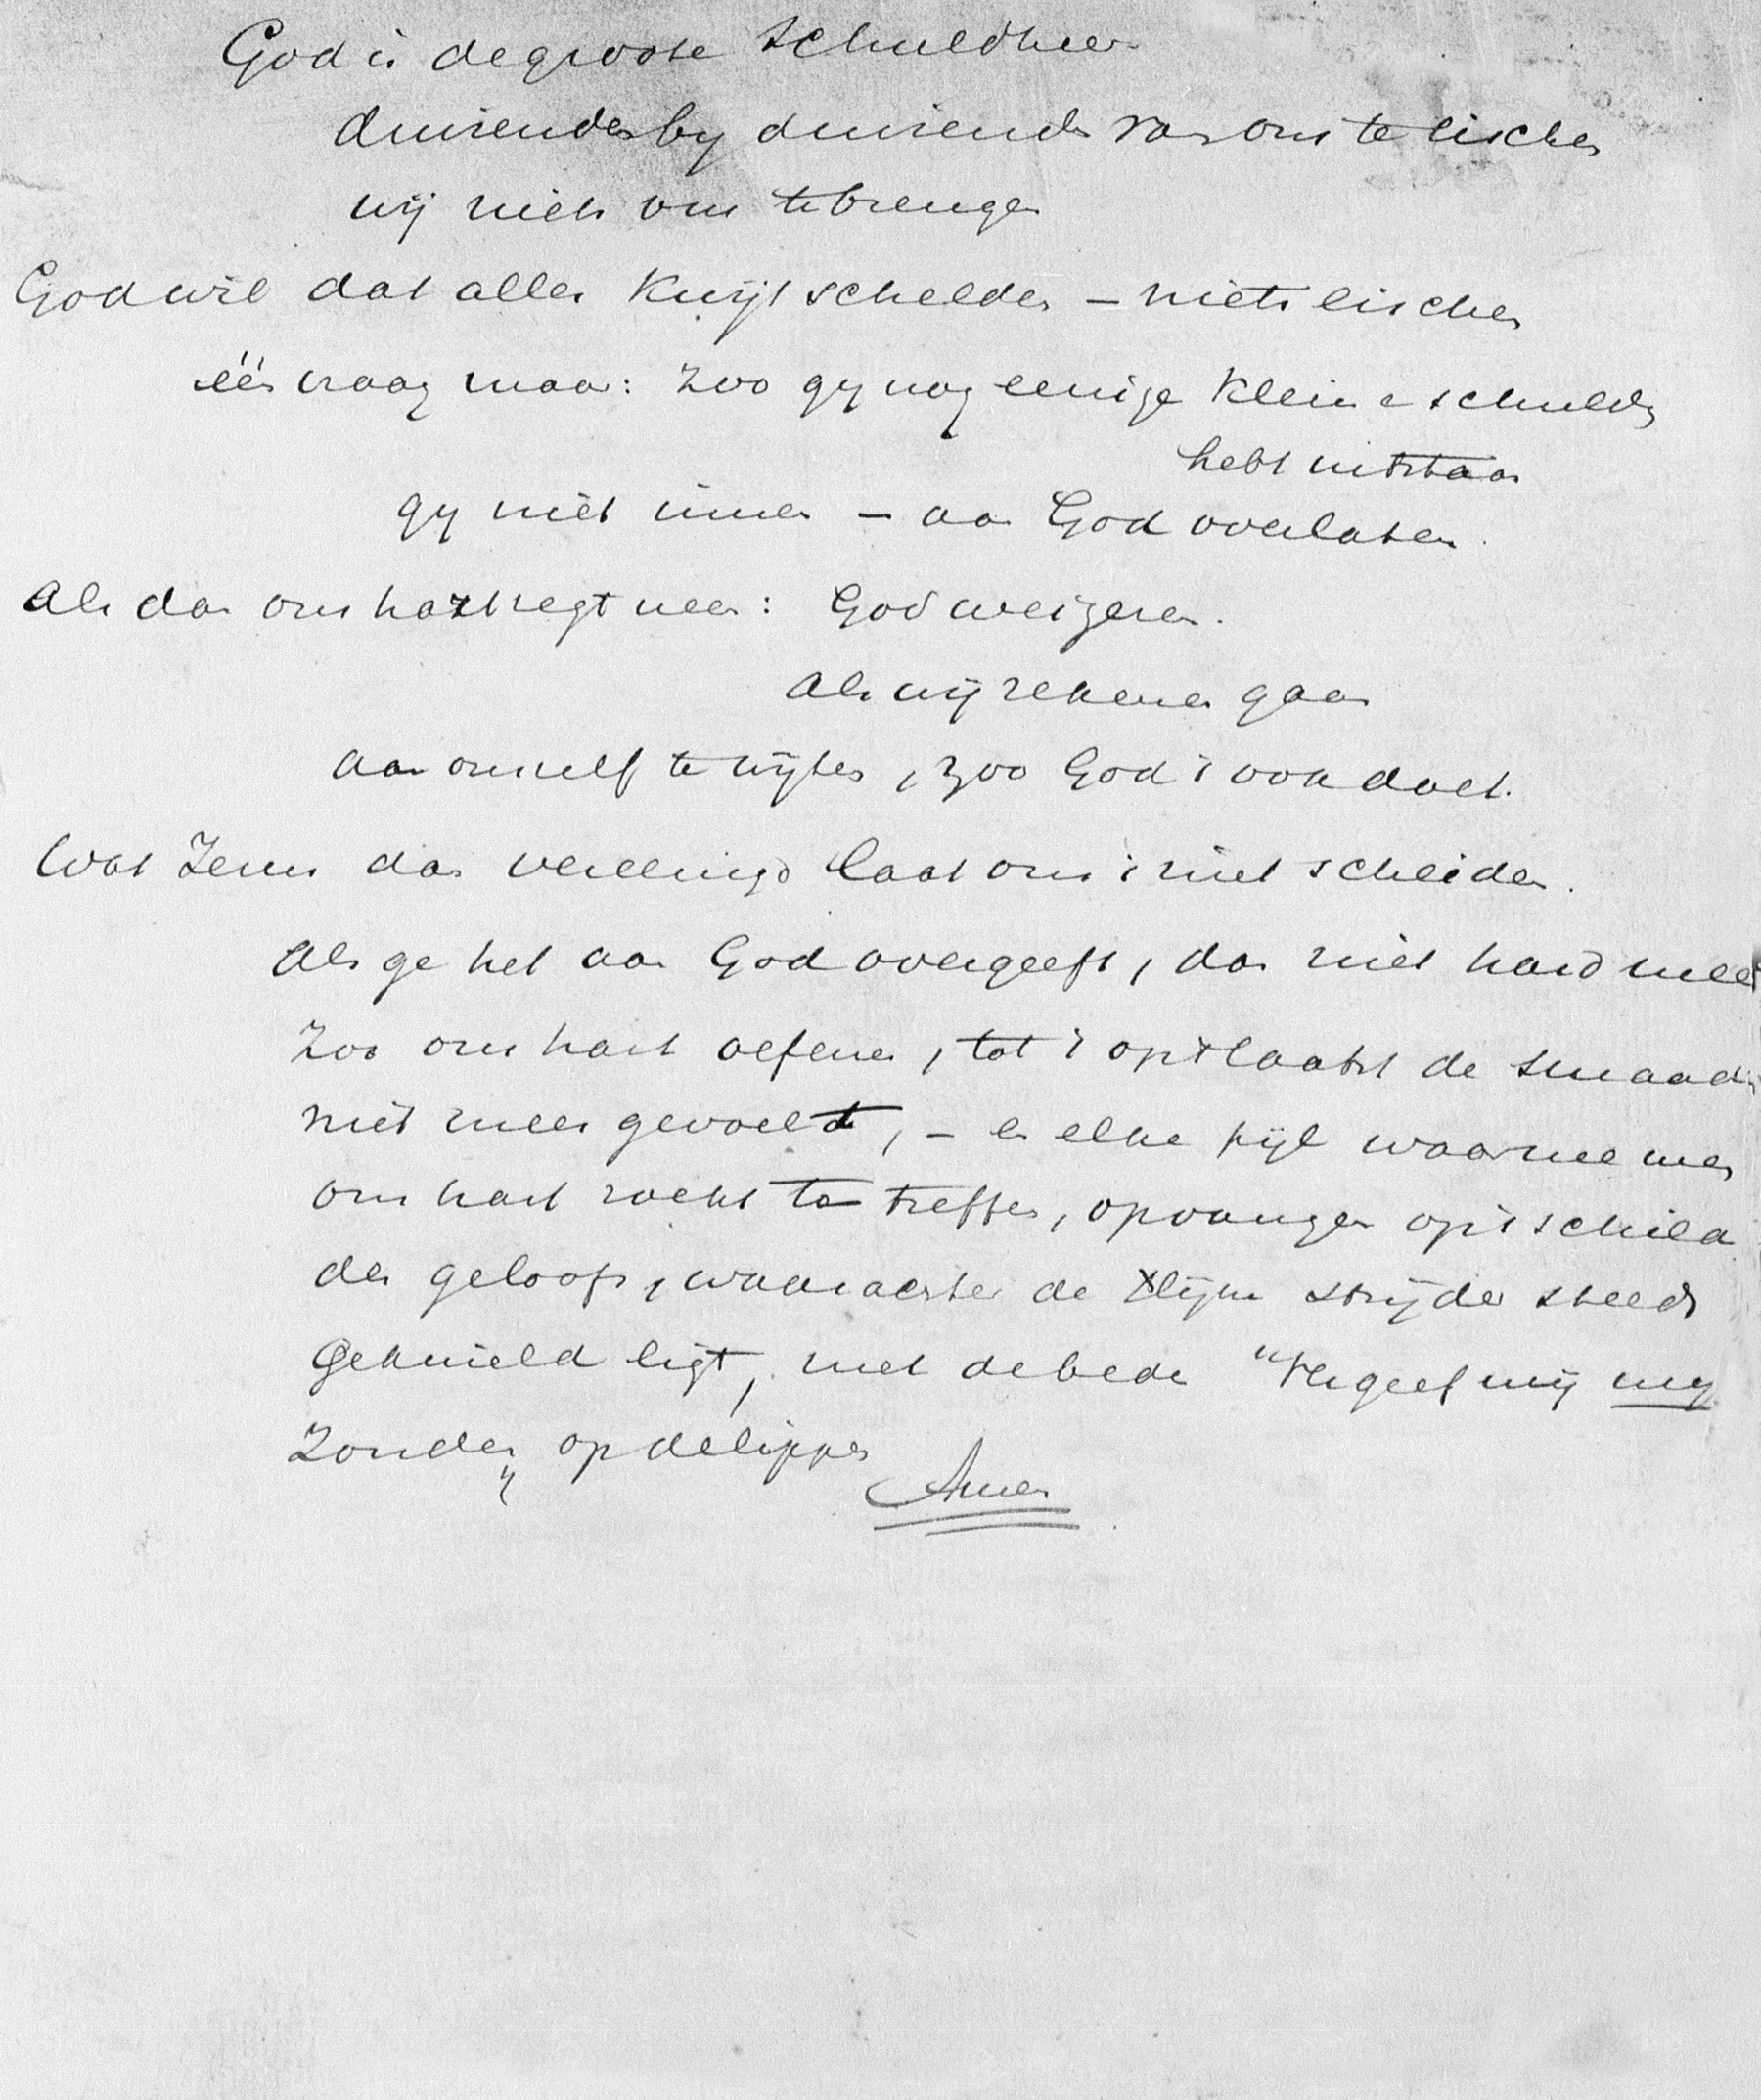 God is de groote Schuldheer
duizenden by duizenden van ons te eischen
wij niets om te brengen
God wil dat alles kwijtschelden – niets eischen
één vraag maar: Zoo gy nog eenige kleine schulden
hebt uitstaan
gy niet innen – aan God overlaten.
Als dan ons hart zegt neen: God weigeren.
Als wij rekenen gaan
aan onszelf te wijten, zoo God 't ook doet.
Wat Jezus dan vereenigd laat ons 't niet scheiden.
Als ge het aan God overgeeft, dan niet hard meer
Zoo ons hart oefenen, tot 't op 't laatst de smaad
niet meer gevoelt, – en elke pijl waarmee men
ons hart zoekt te treffen, opvangen op 't schild
des geloofs, waarachter de strijder steeds
geknield ligt, met de bede "Vergeef mij my
Zonden" op de lippen
Amen